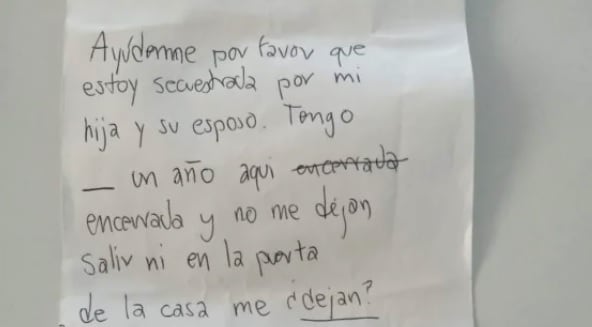 Ayúdenme por favor que
estoy secuestrada por mi
hija y su esposo. Tengo
__ un año aqui ~~encerrada~~
encerrada y no me dejan
Salir ni en la puerta
de la casa me ¿dejan?